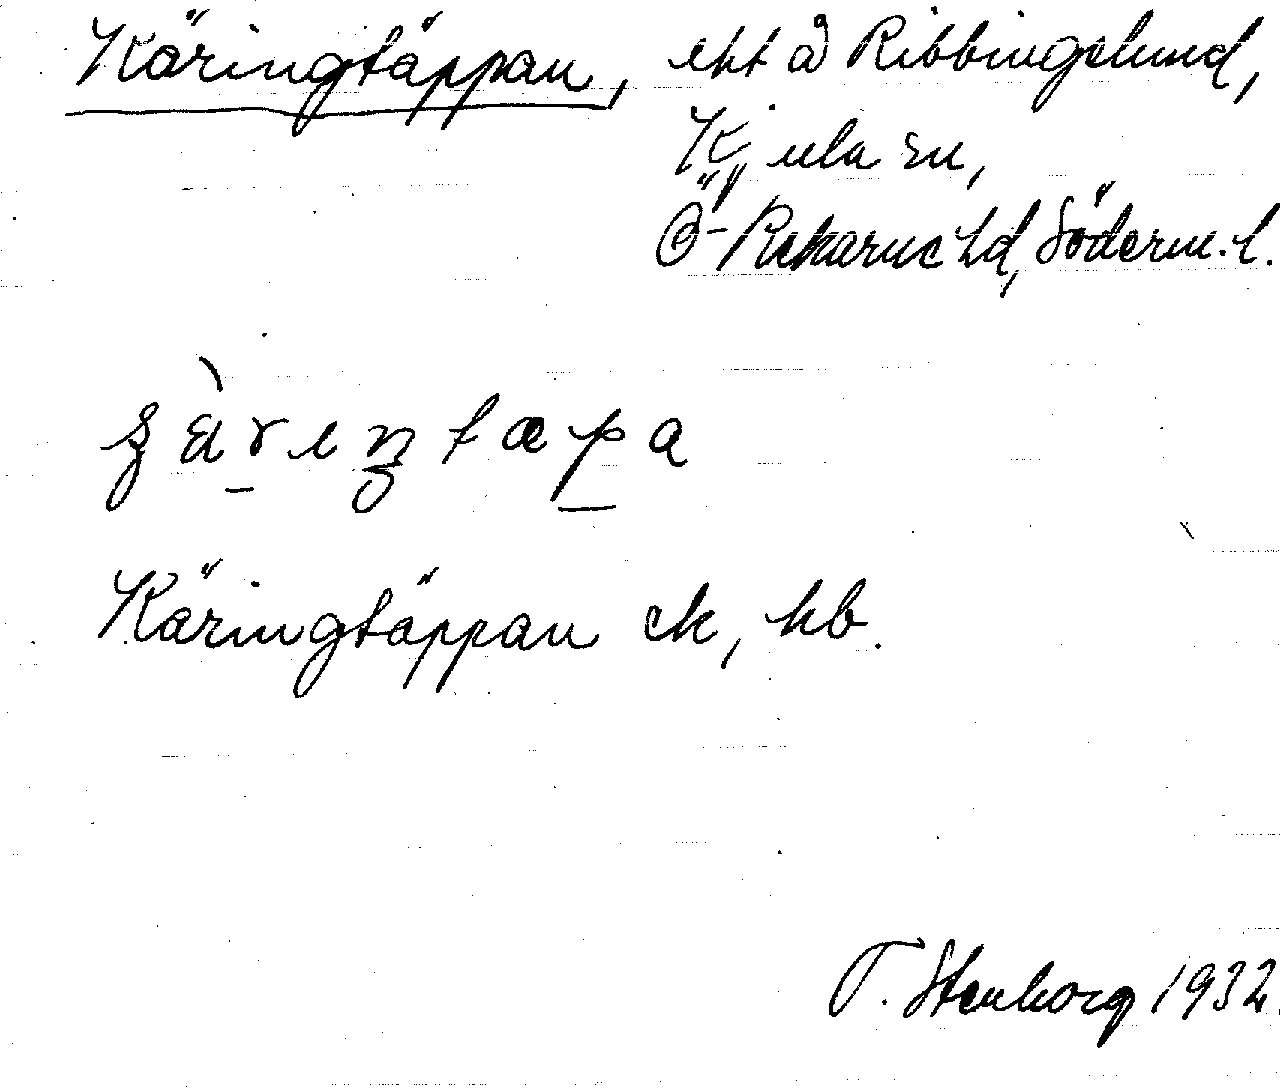 Käringtäppan, ett å Ribbingelund,
Kjula sn,
Ö-Rekarne hd, Söderm. l.
Käringtäppan ek, hb.
T. Stenborg 1932.